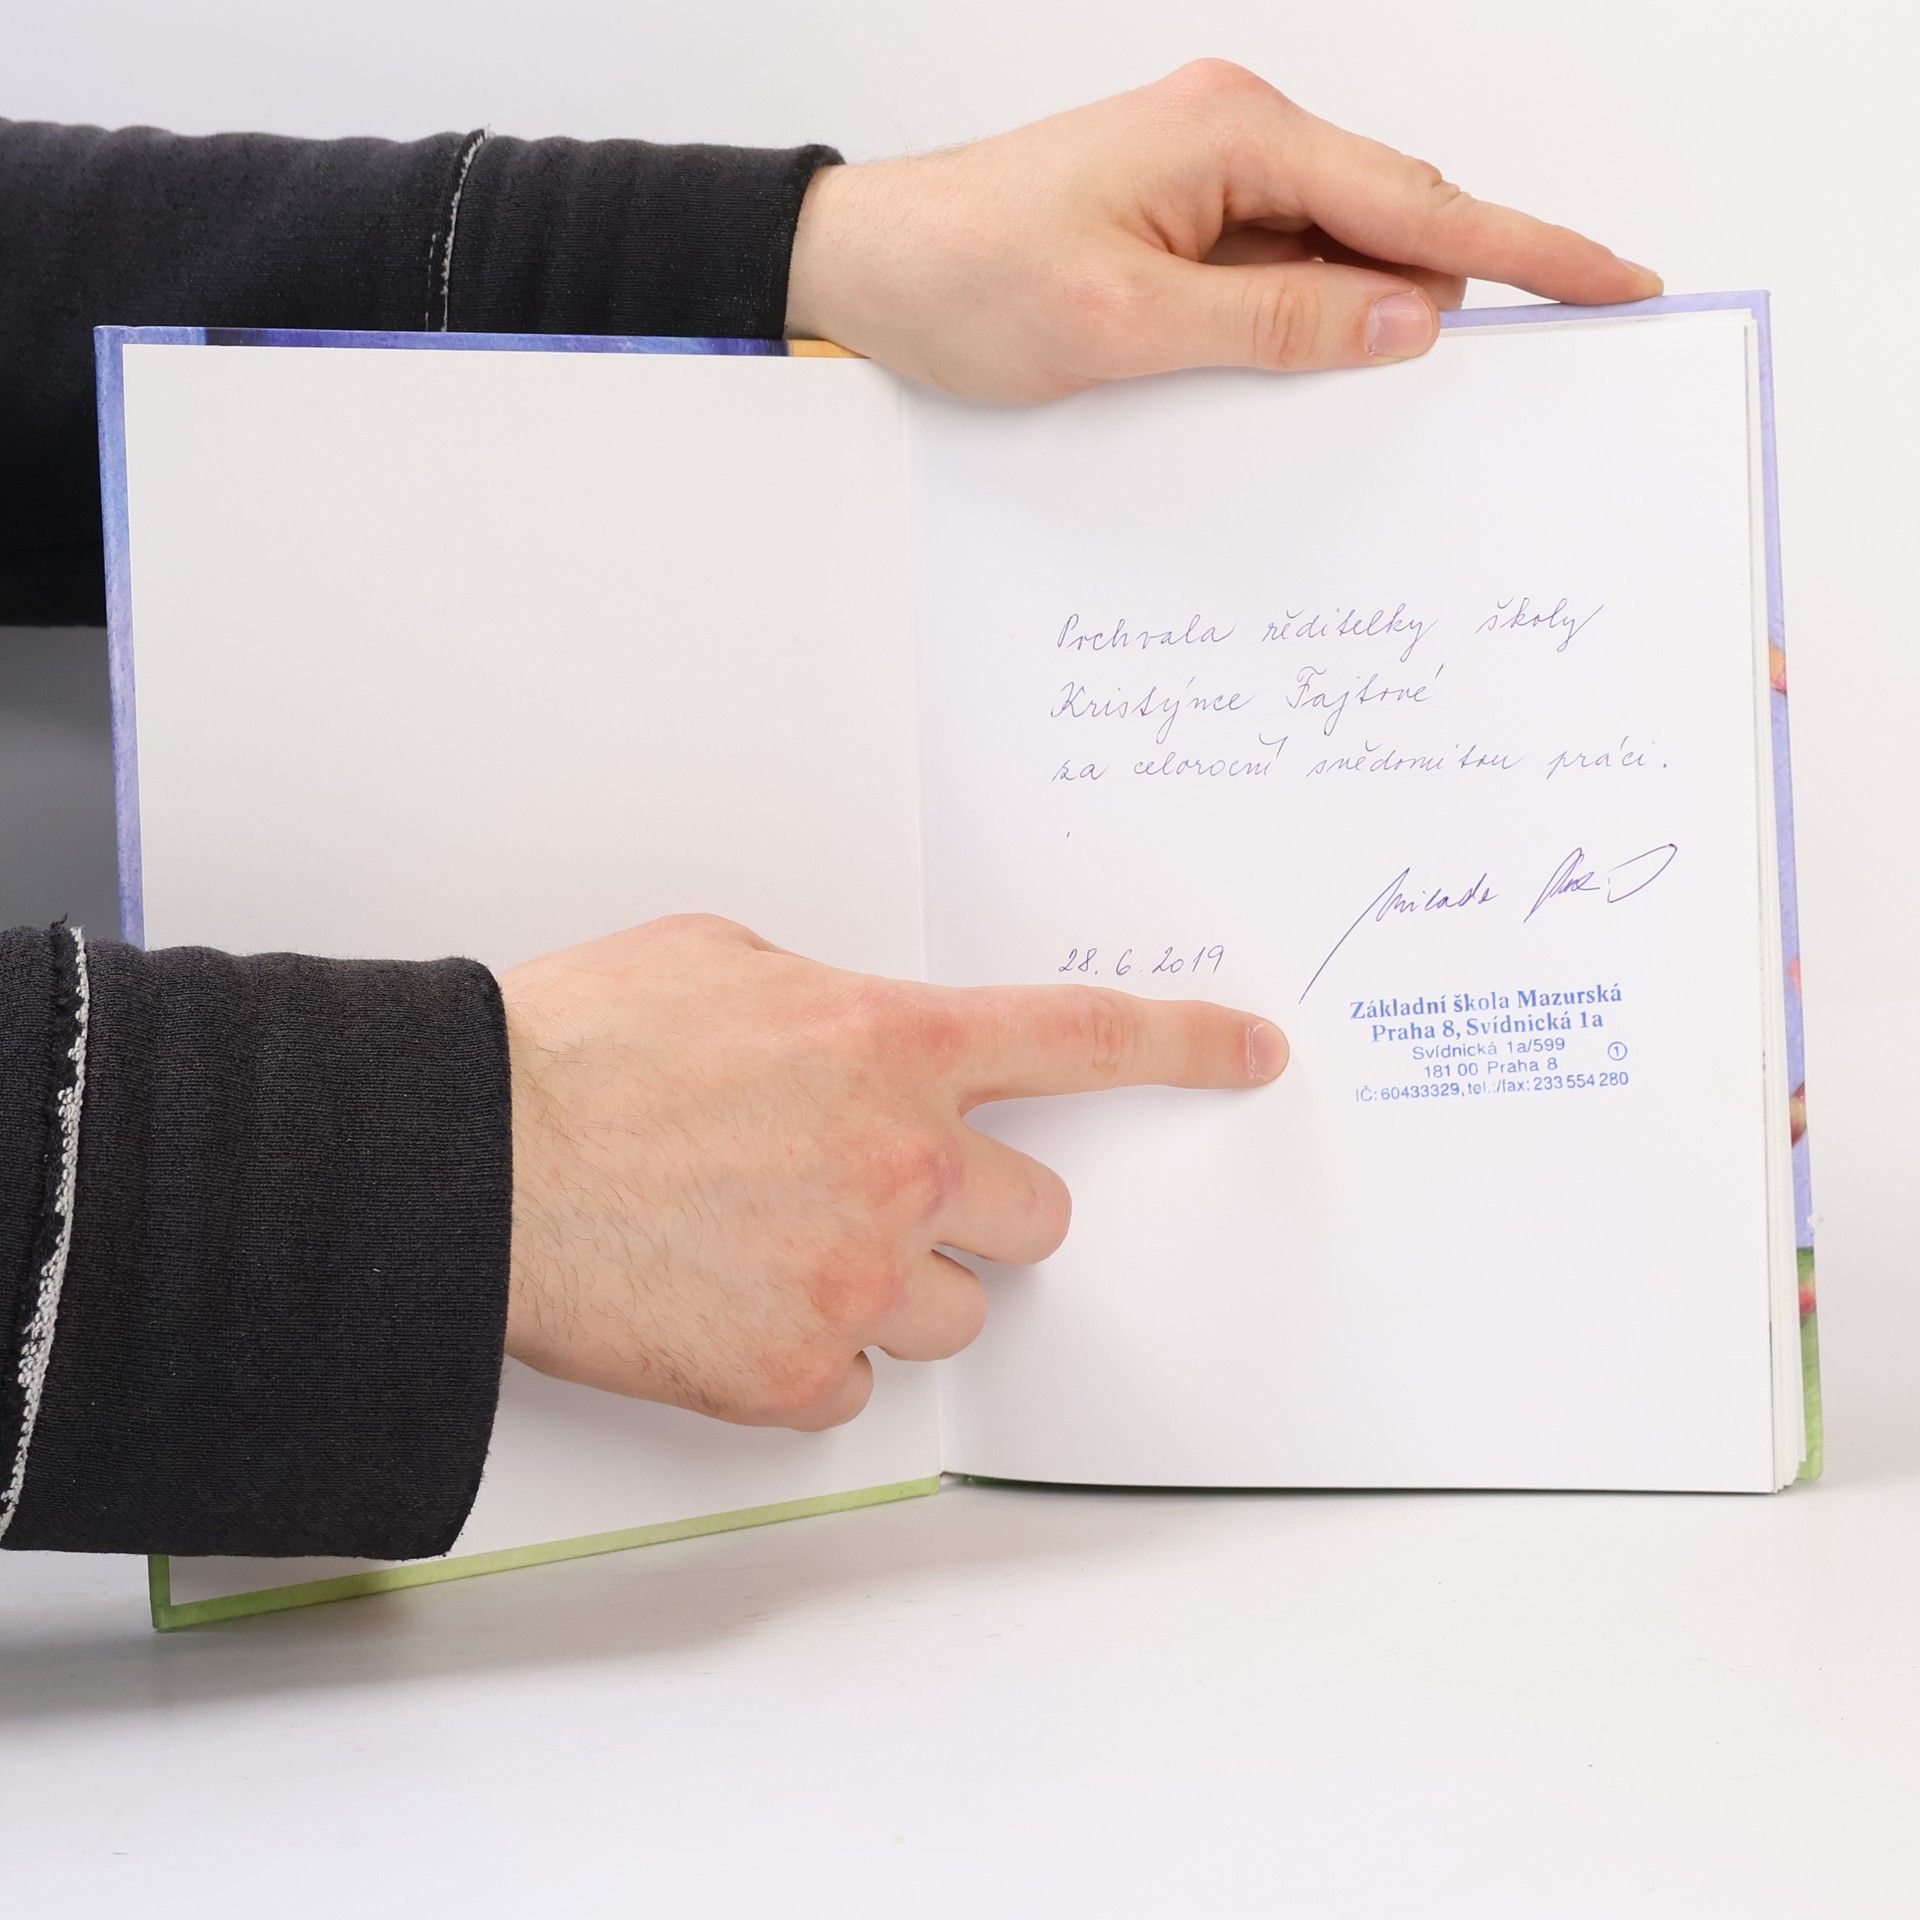 Pochvala ředitelky školy
Kristýnce Fajtové
za celoroční svědomitou práci.
Milada
28. 6. 2019
Základní škola Mazurská
Praha 8, Svídnická 1a
Svídnická 1a/599
181 00 Praha 8 ①
IČ: 60433329, tel.:/fax: 233 554 280